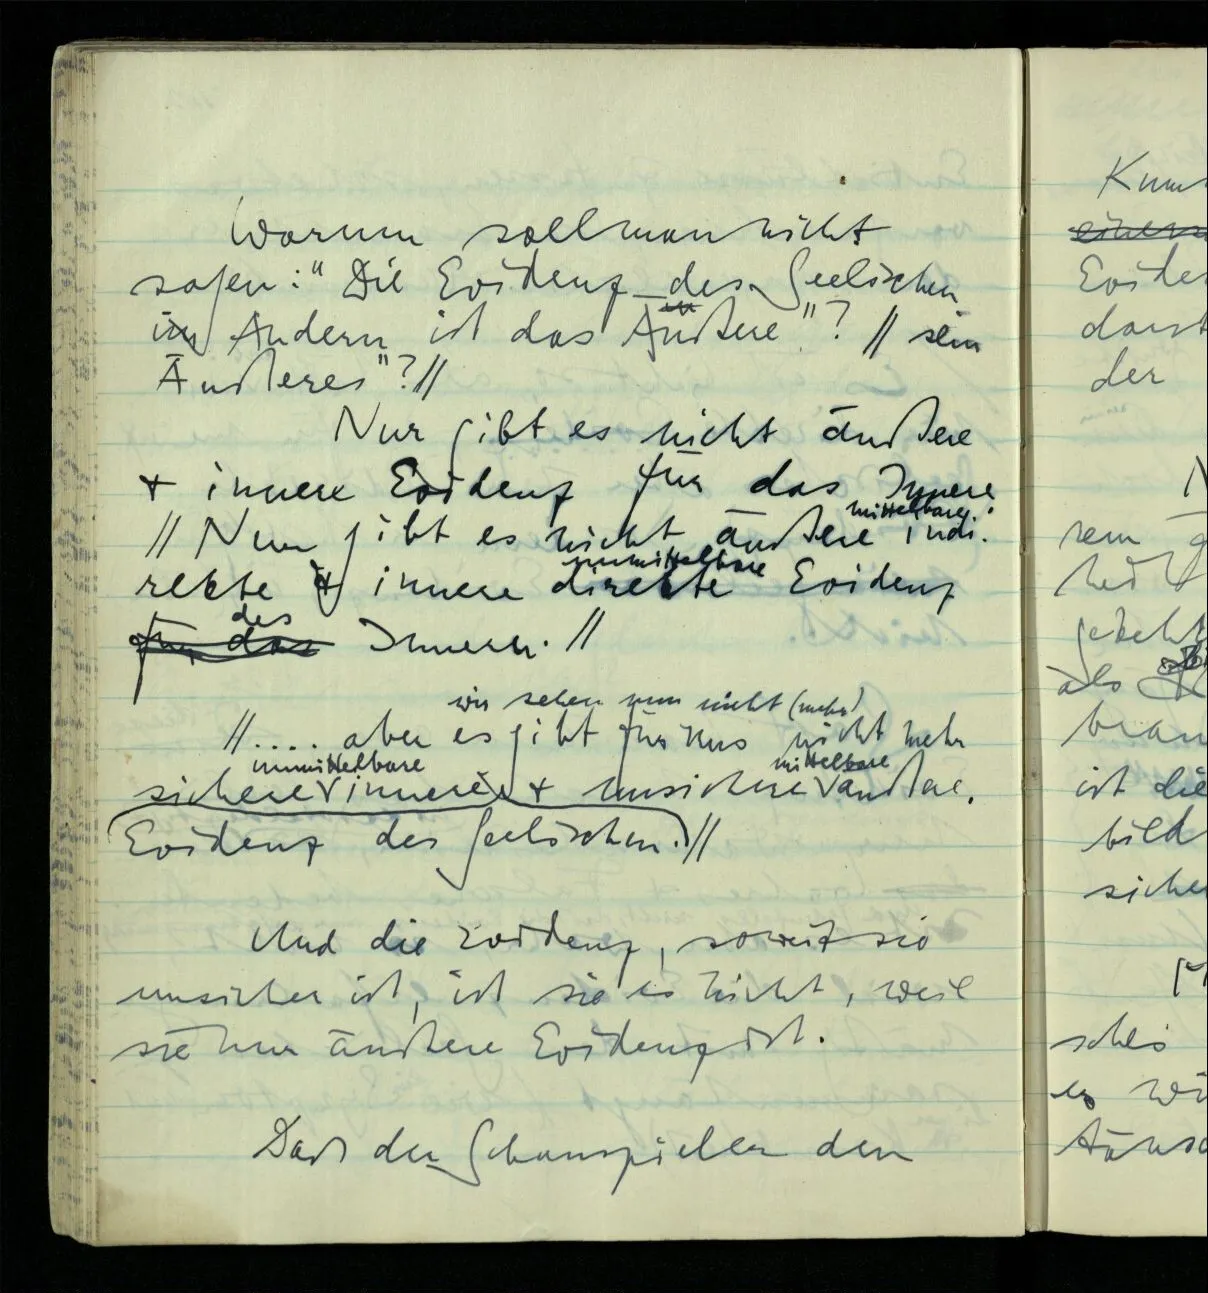 Warum soll man nicht
sagen: "Die Evidenz des Seelischen
im Andern ist das Äußere"? // sein
Äußeres"? //
Nur gibt es nicht äußere
+ innere Evidenz für das Innere.
mittelbare
// Nur gibt es nicht äußere indi-
unmittelbare
rekte & innere direkte Evidenz
des
für das Innern. //
wir sehen nun nicht (mehr)
// .... aber es gibt für uns nicht mehr
unmittelbare mittelbare
sichere innere + unsichere äußere,
Evidenz des Seelischen. //
Und die Evidenz, soweit sie
unsicher ist, ist sie es nicht, weil
sie nur äußere Evidenz ist.
Daß der Schauspieler den
Evide
der
rem
als
ist die
bild
es